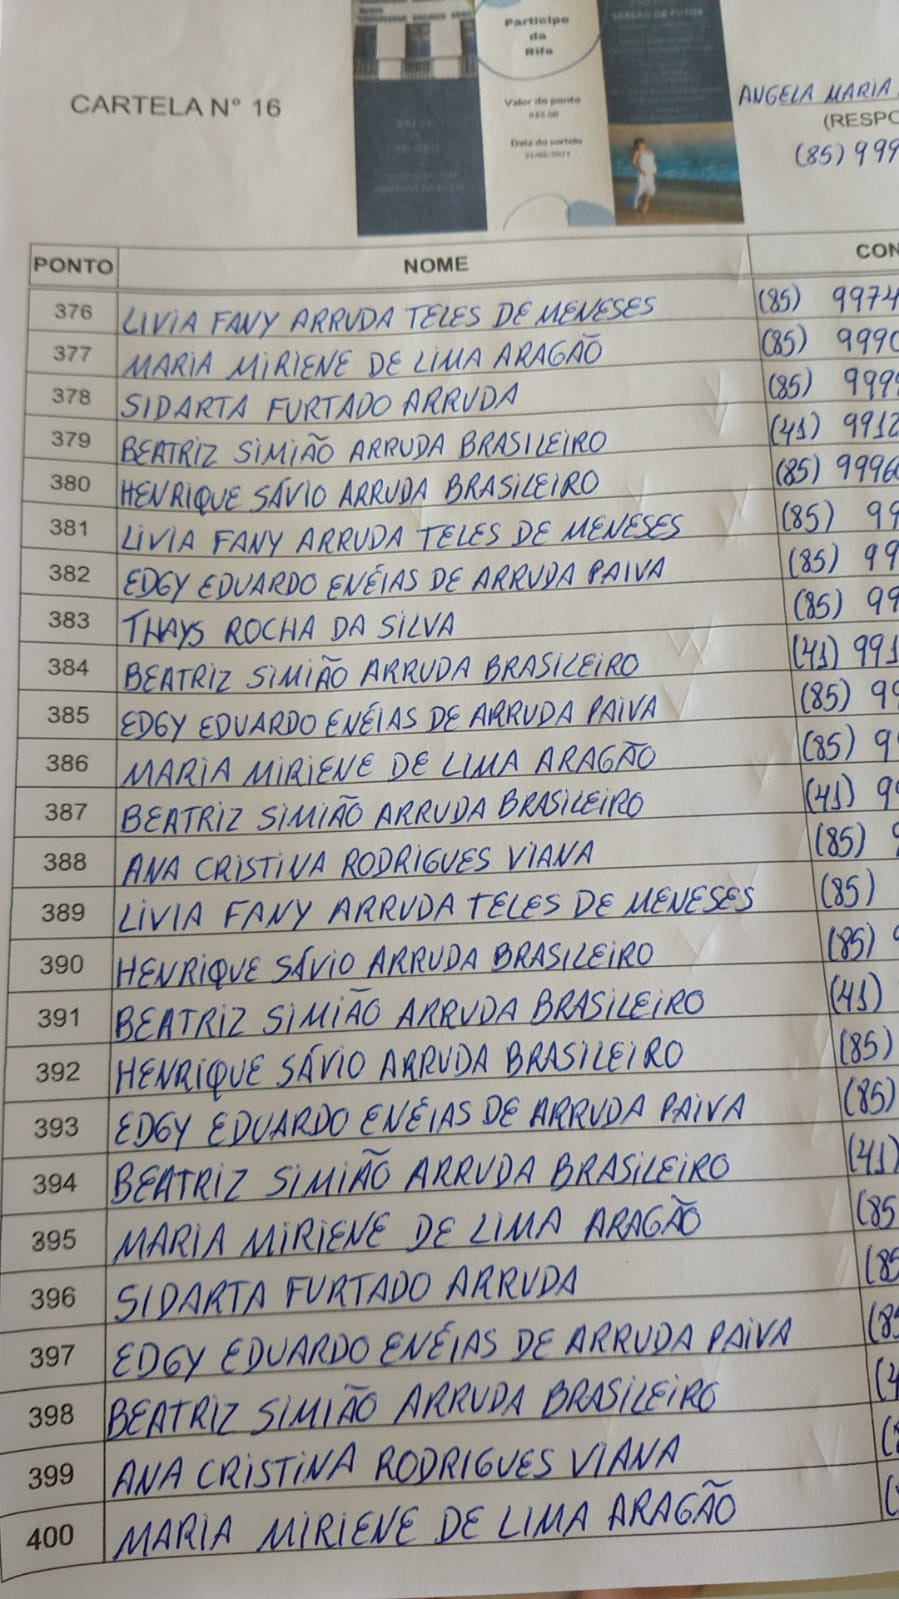 Participe
da
Rifa
Valor do ponto
R$5,00
Data do sorteio
CARTELA N° 16
ANGELA MARIA
(RESPO
(85) 999
PONTO NOME CON
376 LIVIA FANY ARRUDA TELES DE MENESES (85) 9974
377 MARIA MIRIENE DE LIMA ARAGÃO (85) 9990
378 SIDARTA FURTADO ARRUDA (85) 999
379 BEATRIZ SIMIÃO ARRUDA BRASILEIRO (41) 9912
380 HENRIQUE SÁVIO ARRUDA BRASILEIRO (85) 9996
381 LIVIA FANY ARRUDA TELES DE MENESES (85) 99
382 EDGY EDUARDO ENÉIAS DE ARRUDA PAIVA (85) 99
383 THAYS ROCHA DA SILVA (85) 99
384 BEATRIZ SIMIÃO ARRUDA BRASILEIRO (41) 991
385 EDGY EDUARDO ENÉIAS DE ARRUDA PAIVA (85) 99
386 MARIA MIRIENE DE LIMA ARAGÃO (85) 9
387 BEATRIZ SIMIÃO ARRUDA BRASILEIRO (41) 9
388 ANA CRISTINA RODRIGUES VIANA (85)
389 LIVIA FANY ARRUDA TELES DE MENESES (85)
390 HENRIQUE SÁVIO ARRUDA BRASILEIRO (85)
391 BEATRIZ SIMIÃO ARRUDA BRASILEIRO (41)
392 HENRIQUE SÁVIO ARRUDA BRASILEIRO (85)
393 EDGY EDUARDO ENÉIAS DE ARRUDA PAIVA (85)
394 BEATRIZ SIMIÃO ARRUDA BRASILEIRO (41)
395 MARIA MIRIENE DE LIMA ARAGÃO (85
396 SIDARTA FURTADO ARRUDA (85
397 EDGY EDUARDO ENÉIAS DE ARRUDA PAIVA (85
398 BEATRIZ SIMIÃO ARRUDA BRASILEIRO (4
399 ANA CRISTINA RODRIGUES VIANA (8
400 MARIA MIRIENE DE LIMA ARAGÃO (